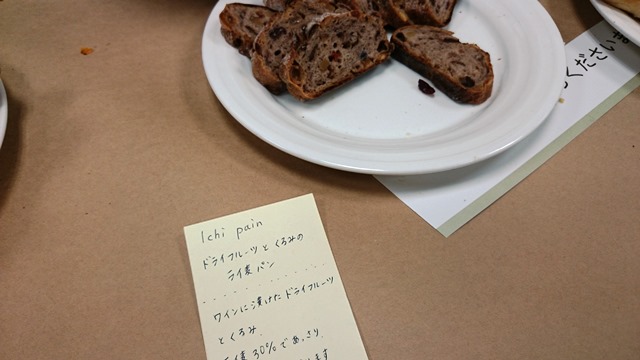 ください
Ichi pain
ドライフルーツとくるみの
ライ麦パン
ワインに漬けたドライフルーツ
とくるみ
ライ麦30%であっさり
ます